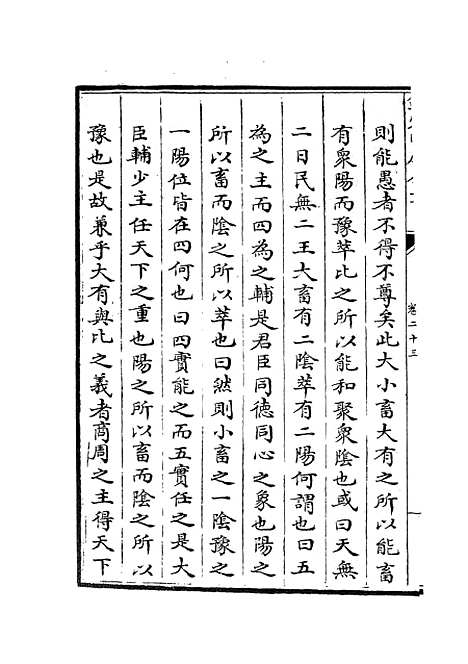 則能愚者不得不尊矣此大小畜大有之所以能畜
有衆陽而豫萃比之所以能和聚衆陰也或曰天無
二日民無二王大畜有二陰萃有二陽何謂也曰五
為之主而四為之輔是君臣同德同心之象也陽之
所以畜而陰之所以萃也曰然則小畜之一陰豫之
一陽位皆在四何也曰四實能之而五實任之是大
臣輔少主任天下之重也陽之所以畜而陰之所以
豫也是故兼乎大有與比之義者商周之主得天下
卷二十三